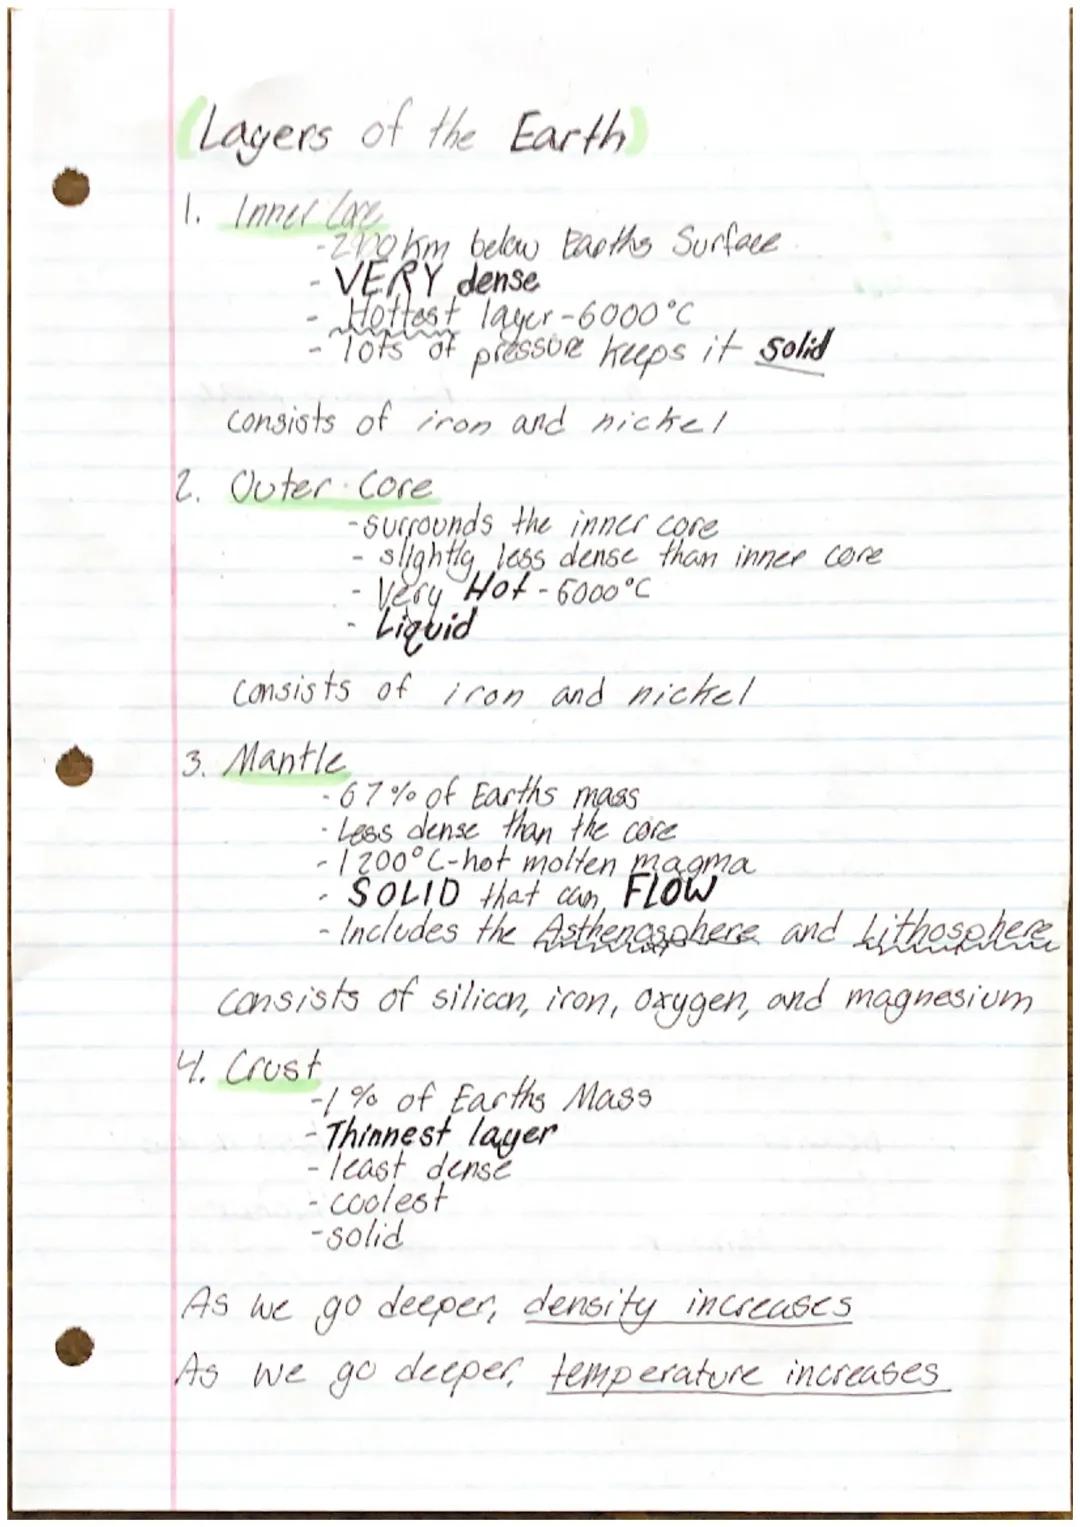 (Layers of the Earth)
1. Inner Core
-2900km below Earths Surface
- VERY dense
- Hottest layer-6000°C
- lots of pressure keeps it solid
consists of iron and nickel
2. Outer Core
-surrounds the inner core
- slightly less dense than inner core
- Very Hot -6000°C
- Liquid
consists of iron and nickel
3. Mantle
- 67% of Earths mass
- Less dense than the core
- 1200°C-hot molten magma
- SOLID that can FLOW
- Includes the Asthenosphere and Lithosphere
consists of silicon, iron, oxygen, and magnesium
4. Crust
-1% of Earths Mass
- Thinnest layer
- least dense
- coolest
-solid
As we go deeper, density increases
As we go deeper, temperature increases